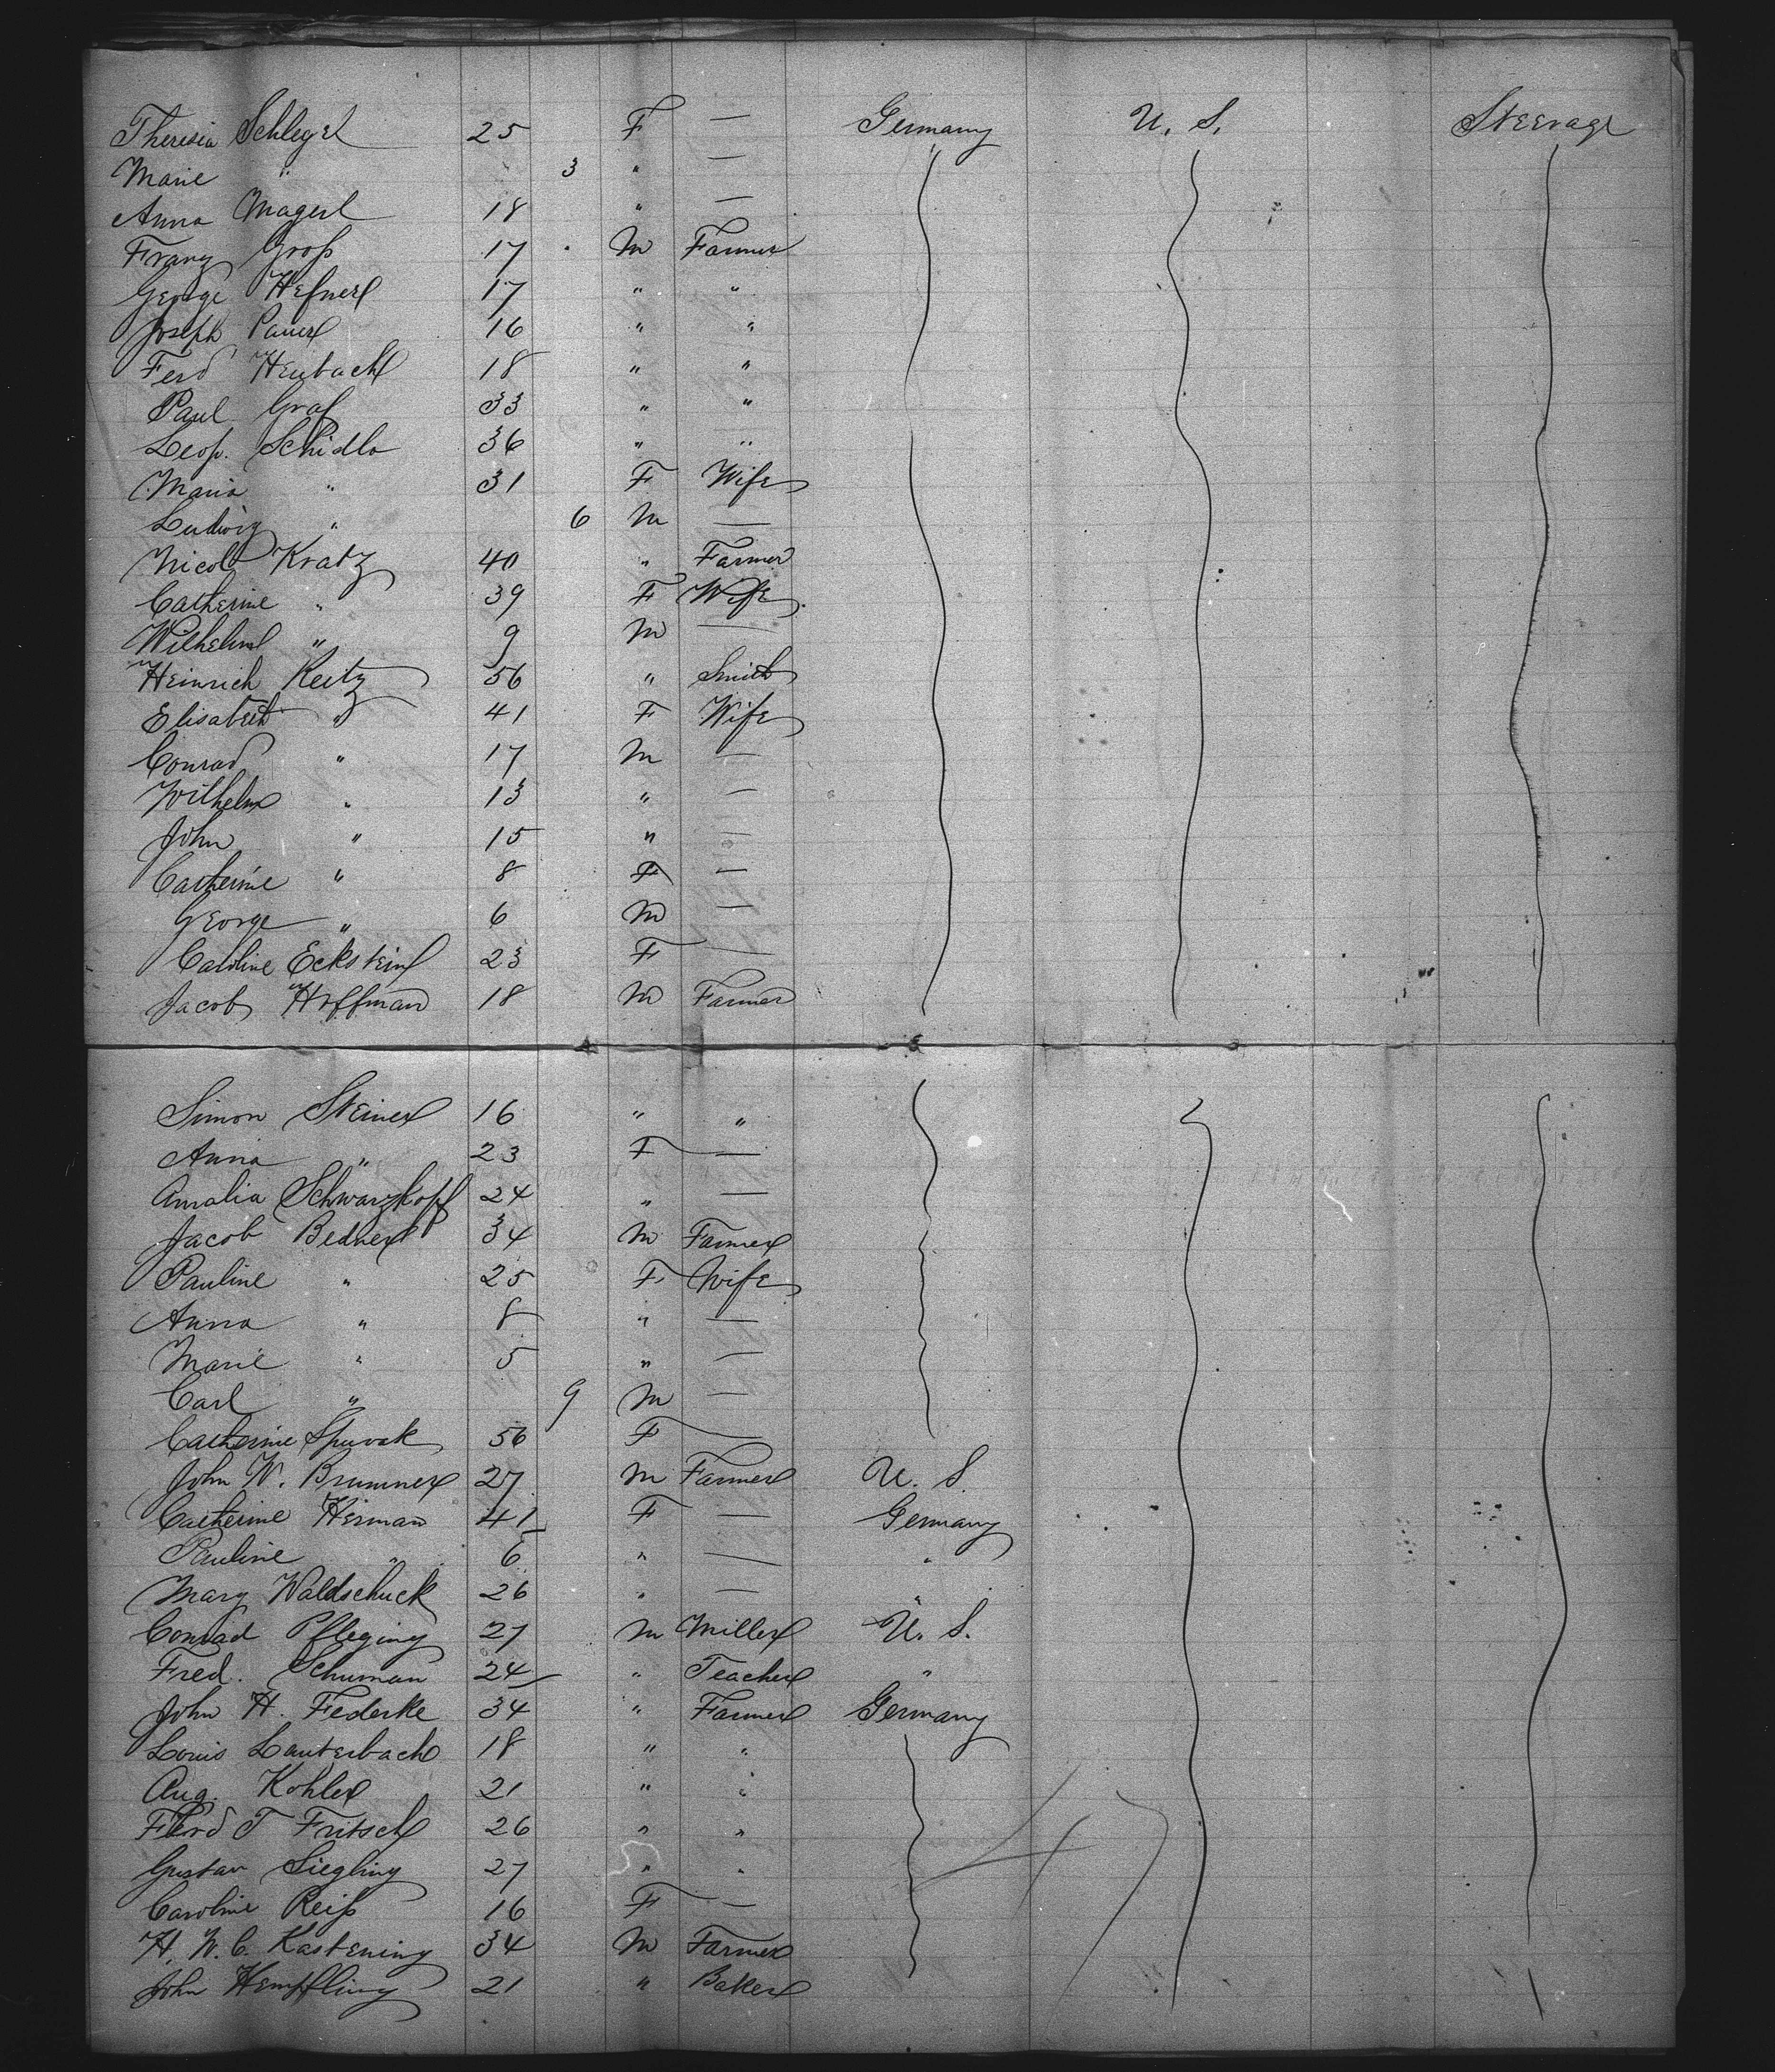 Theresia Schlegel 25 F — Germany U. S. Steerage
Marie " 3 " —
Anna Magerl 18 " —
Franz Groß 17 M Farmer
George Hefner 17 " "
Joseph Pauer 16 " "
Ferd Heubach 18 " "
Paul Graf 33 " "
Leop. Schidlo 36 " "
Maria " 31 F Wife
Ludwig " 6 M —
Nicol Kratz 40 " Farmer
Catherine " 39 F Wife
Wilhelm " 9 M —
Heinrich Reitz 56 " Smith
Elisabeth " 41 F Wife
Conrad " 17 M —
Wilhelm " 13 " —
John " 15 " —
Catherine " 8 F —
George " 6 M —
Caroline Eckstein 23 F —
Jacob Hoffman 18 M Farmer
Simon Steiner 16 " "
Anna " 23 F —
Amalia Schwarzkopf 24 " —
Jacob Bedner 34 M Farmer
Pauline " 25 F Wife
Anna " 8 " —
Marie " 5 " —
Carl " 9 M —
Catherine Spuvak 56 F —
John W. Brummer 27 M Farmer U. S.
Catherine Herman 41 F — Germany
Pauline " 6 " — "
Mary Waldschuck 26 " — "
Conrad Pfleging 27 M Miller U. S.
Fred. Schuman 24 " Teacher "
John H. Federke 34 " Farmer Germany
Louis Lauterbach 18 " "
Aug. Kohler 21 " "
Ferd T Fritsch 26 " "
Gustav Siegling 27 " "
Caroline Reiß 16 F —
H. W. C. Kastening 34 M Farmer
John Hempfling 21 " Baker